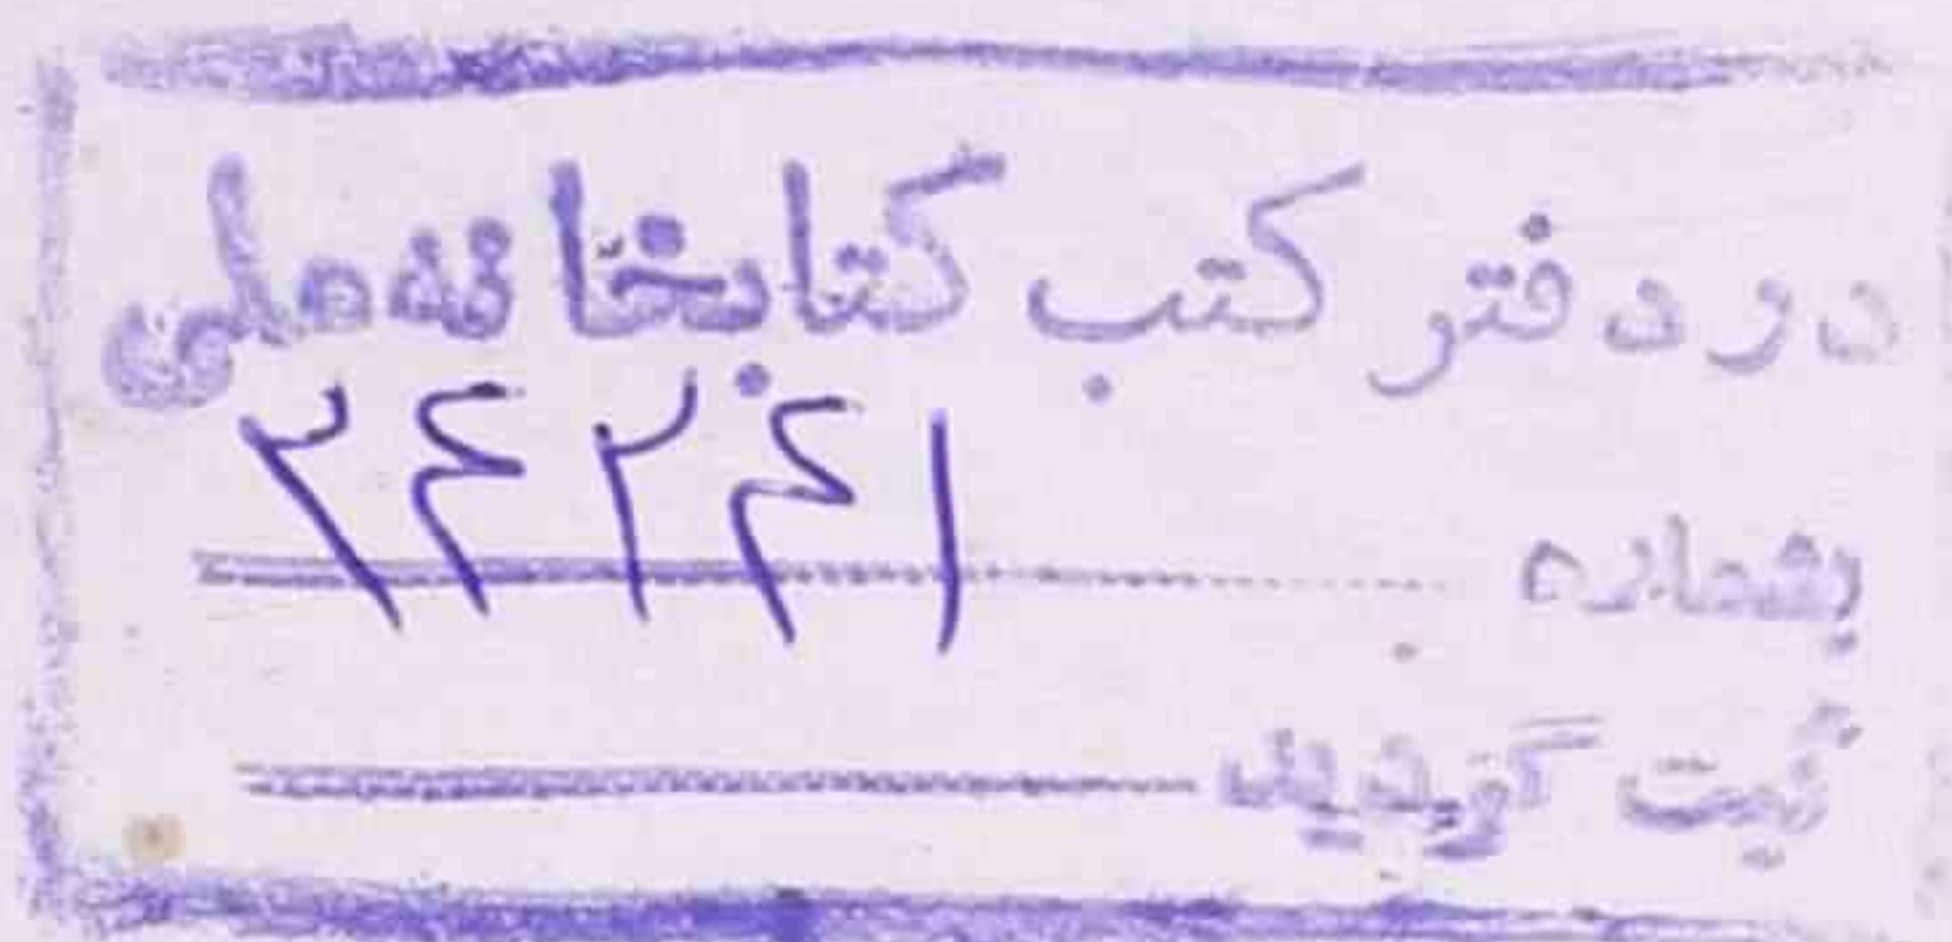 در دفتر کتب کتابخانه ملی
بشماره ۲۴۲۴۱
ثبت گردید